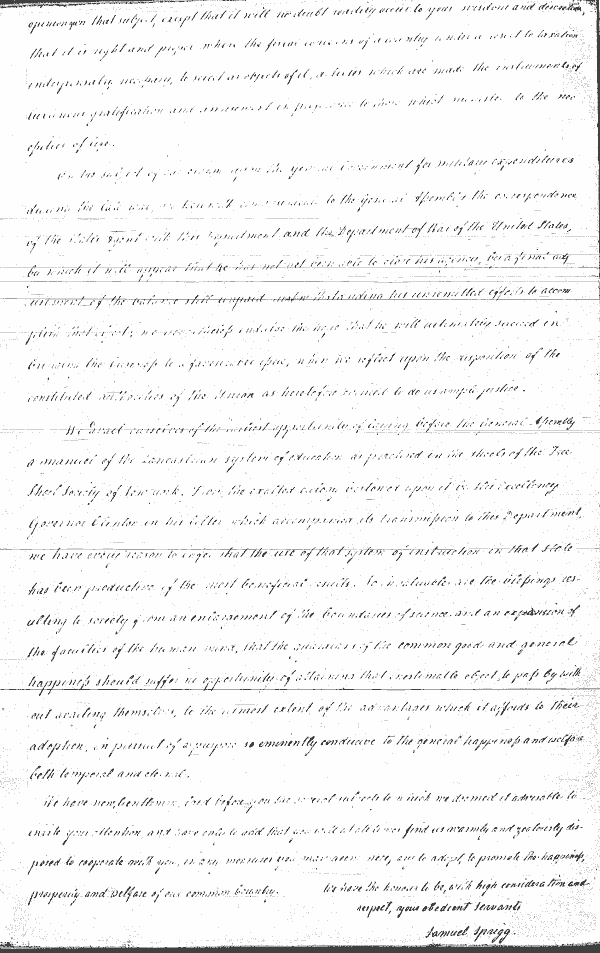 opinion upon that subject, except that it will no doubt readily occur to your wisdom and discretion,
that it is right and proper when the fiscal concerns of a country render a resort to taxation
indispensably necessary, to select as objects of it, articles which are made the instruments of
gratification and amusement in preference to those which minister to the
of life.
On the subject of the claim upon the general Government for military expenditures
during the late war, we to the General Assembly the correspondence
of the State Agent with this Department and the Department of War of the United States,
by which it will appear that he has not yet been able to close his agency, by a final adj
ustment of the balance still unpaid notwithstanding his unremitted efforts to accom
plish that object; we indulge the hope that he will ultimately succeed in
bringing the to a favourable issue, when we reflect upon the disposition of the
constituted authorities of the Union as heretofore evinced to do us ample justice.
We avail ourselves of the earliest opportunity of laying before the General Assembly
a manual of the Lancastrian system of education as practised in the schools of the Free
School Society of New York. From the exalted bestowed upon it by His Excellency
Governor Clinton in his letter which accompanied its transmission to this Department,
we have every reason to infer that the use of that system of instruction in that State
has been productive of the most beneficial results. So invaluable are the blessings res-
ulting to society from an enlargement of the boundaries of science and an expansion of
the faculties of the human mind, that the guardians of the common good and general
happiness should suffer no opportunity of attaining that inestimable object, to pass by with
out availing themselves, to the utmost extent of the advantages which it affords to their
adoption, in pursuit of a purpose so eminently conducive to the general happiness and welfare
both temporal and eternal.
We have now, Gentlemen, laid before you the several subjects to which we deemed it advisable to
invite your attention, and have only to add that you will at all times find us warmly and zealously dis-
posed to cooperate with you, in any measures you may deem necessary to adopt, to promote the happiness,
prosperity and welfare of our common Country. We have the honor to be, with high consideration and
respect, your obedient servants
Samuel Sprigg.